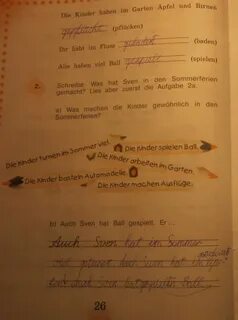 Die Kinder haben im Garten Äpfel und Birnen
gepflückt (pflücken)
Ihr habt im Fluss gebadet (baden)
Alle haben viel Ball gespielt (spielen)
2. Schreibe. Was hat Sven in den Sommerferien
gemacht? Lies aber zuerst die Aufgabe 2a.
a) Was machen die Kinder gewöhnlich in den
Sommerferien?
Die Kinder turnen im Sommer viel.
Die Kinder spielen Ball.
Die Kinder arbeiten im Garten.
Die Kinder basteln Automodelle.
Die Kinder machen Ausflüge.
b) Auch Sven hat Ball gespielt. Er...
Auch Sven hat im Sommer
Sven hat im
Sven hat
26